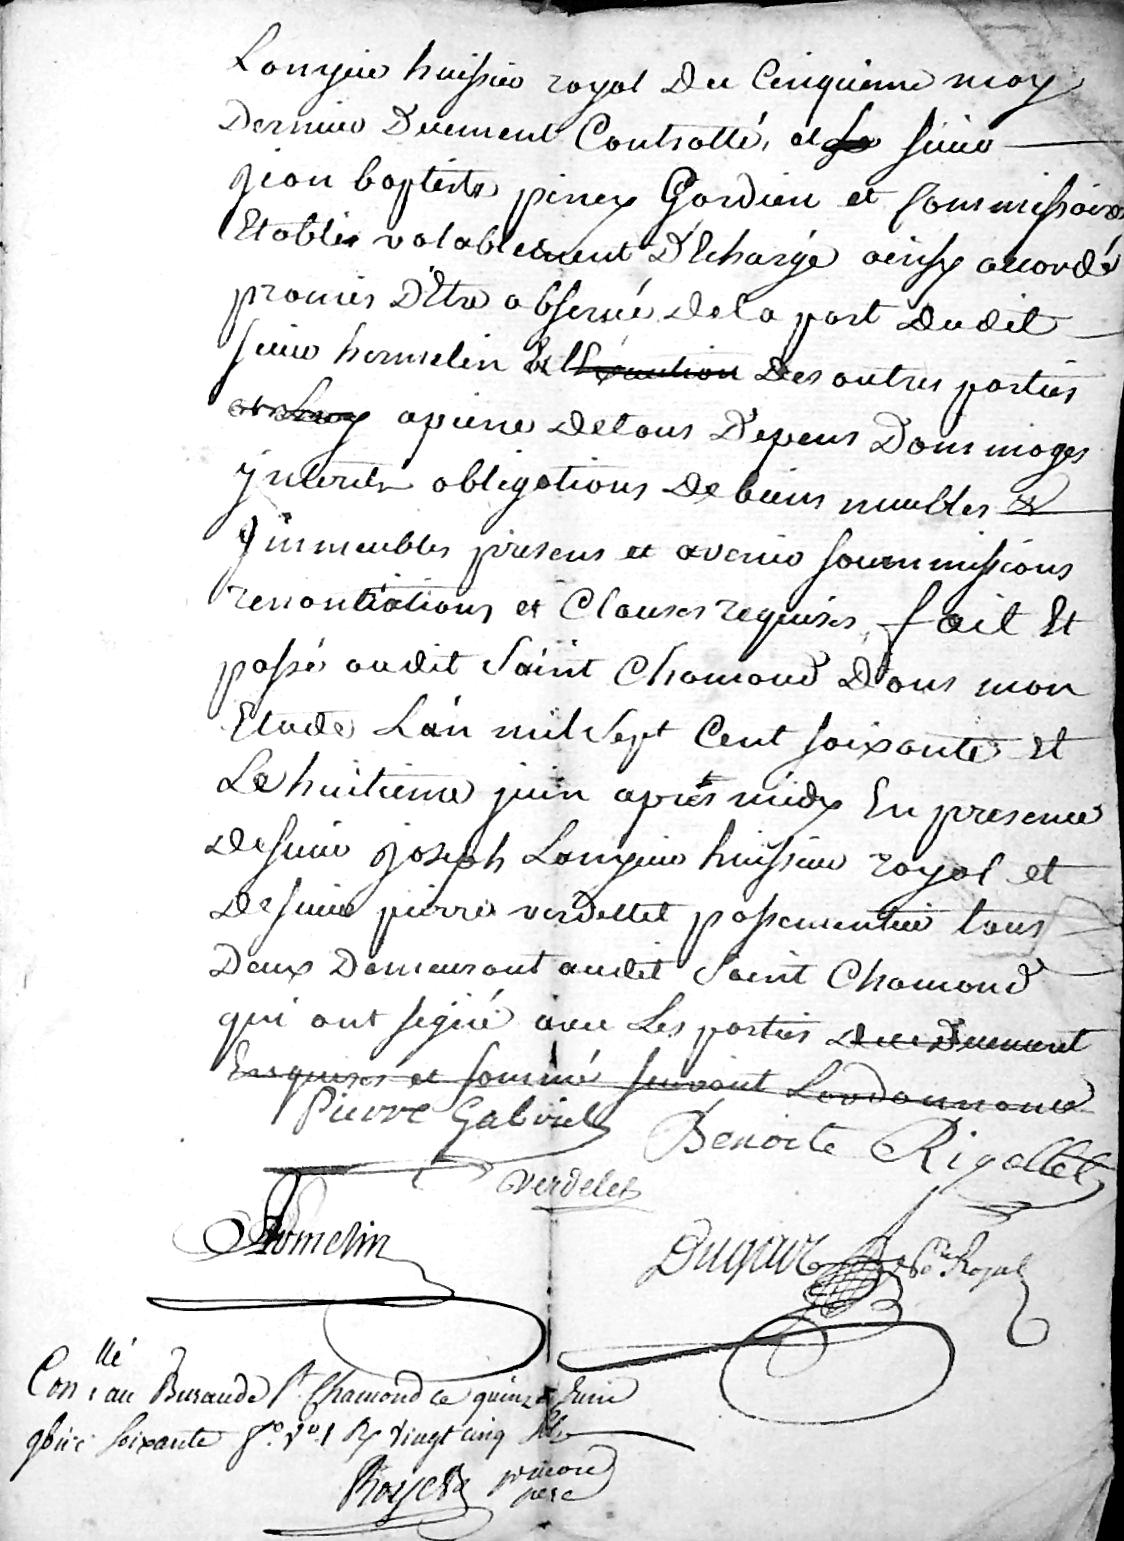 Lonjein huissier royal du Cinquieme may
Dernier Duement Controllé, et le sieur
jean baptiste piney Gardien et Commissaire
Etablis valablement D'Echargé ainsy accordé
promis D'Etre observé de la part dudit
sieur homelin & l'Exécution des autres parties
a peine de tous Depens Dommages
ynterets obligations de biens meubles &
ymmeubles presens et avenir soummissions
renontiations et Clauses requises, fait Et
passé audit Saint Chamond Dans mon
Etude Lan mil Sept Cent soixante Et
Le huitieme juin aprés midy En presence
de sieur joseph Lonjein huissier royal et
de sieur pierre verdellet passementier tous
Deux Demeurant audit Saint Chamond
qui ont signé avec Les parties de ce Duement
Enquises et sommé suivant Lordonnance
Pierre Gabriel
Benoite Rigollet
Verdelet
homelin
Dugair Nre Royal
Conllé au Bureau de St Chamond ce quinze Juin
gbiic soixante fo. vo. 1 Rx vingt cinq sols